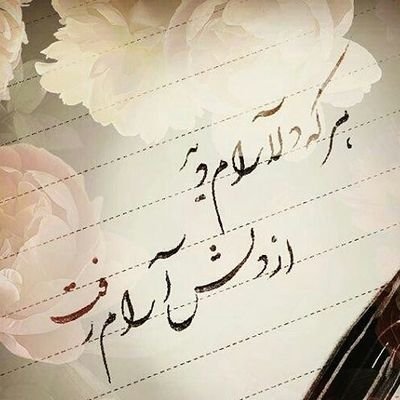 هر که دلارام دید
از دلش آرام رفت